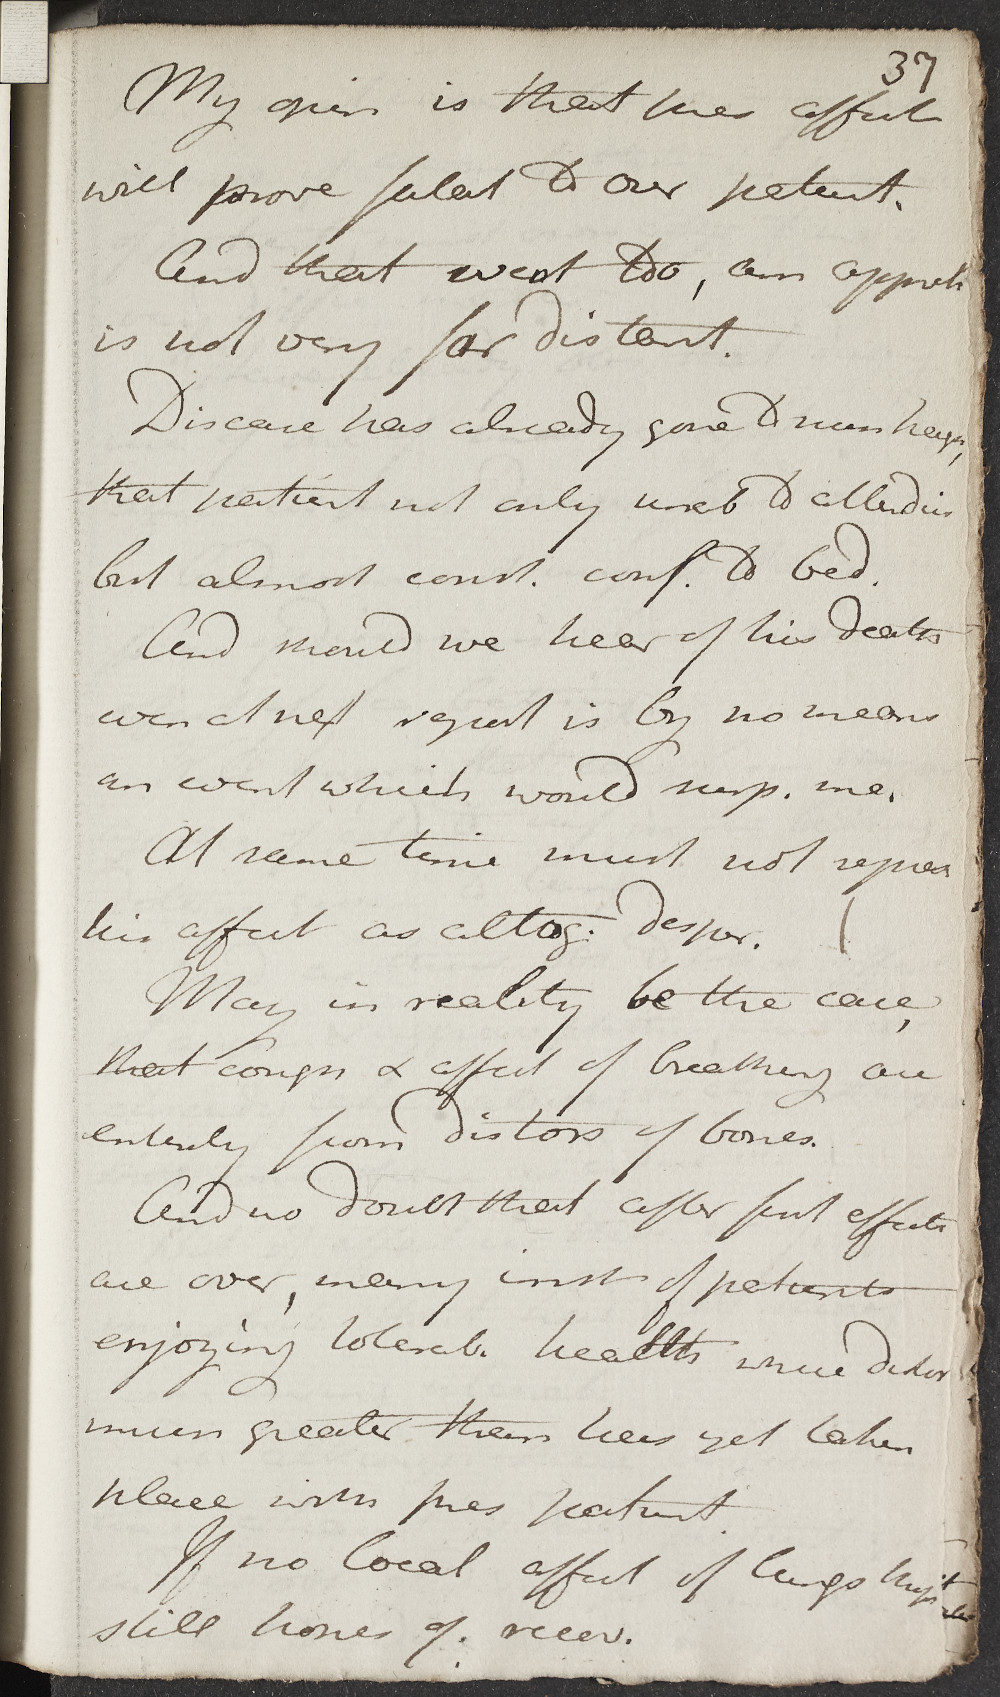 37
My opin is that pres affect
will prove fatal to our patient.
And that event too, am appreh
is not very far distant.
Disease has already gone to such heigt,
that patient not only unab to attend in
but almost const. conf. to bed.
And should we hear of his death
even at next report is by no means
an event which would surp. me.
At same time must not repres
his affect as altog: desper.
May in reality be the case,
that cough & affect of breathing are
entirely from distors of bones.
And no doubt that after first effects
are over, many inst of patients
enjoying tolerab. health where distor
much greater than has yet taken
place with pres patient
If no local affect of lungs might
still hopes of. recov.